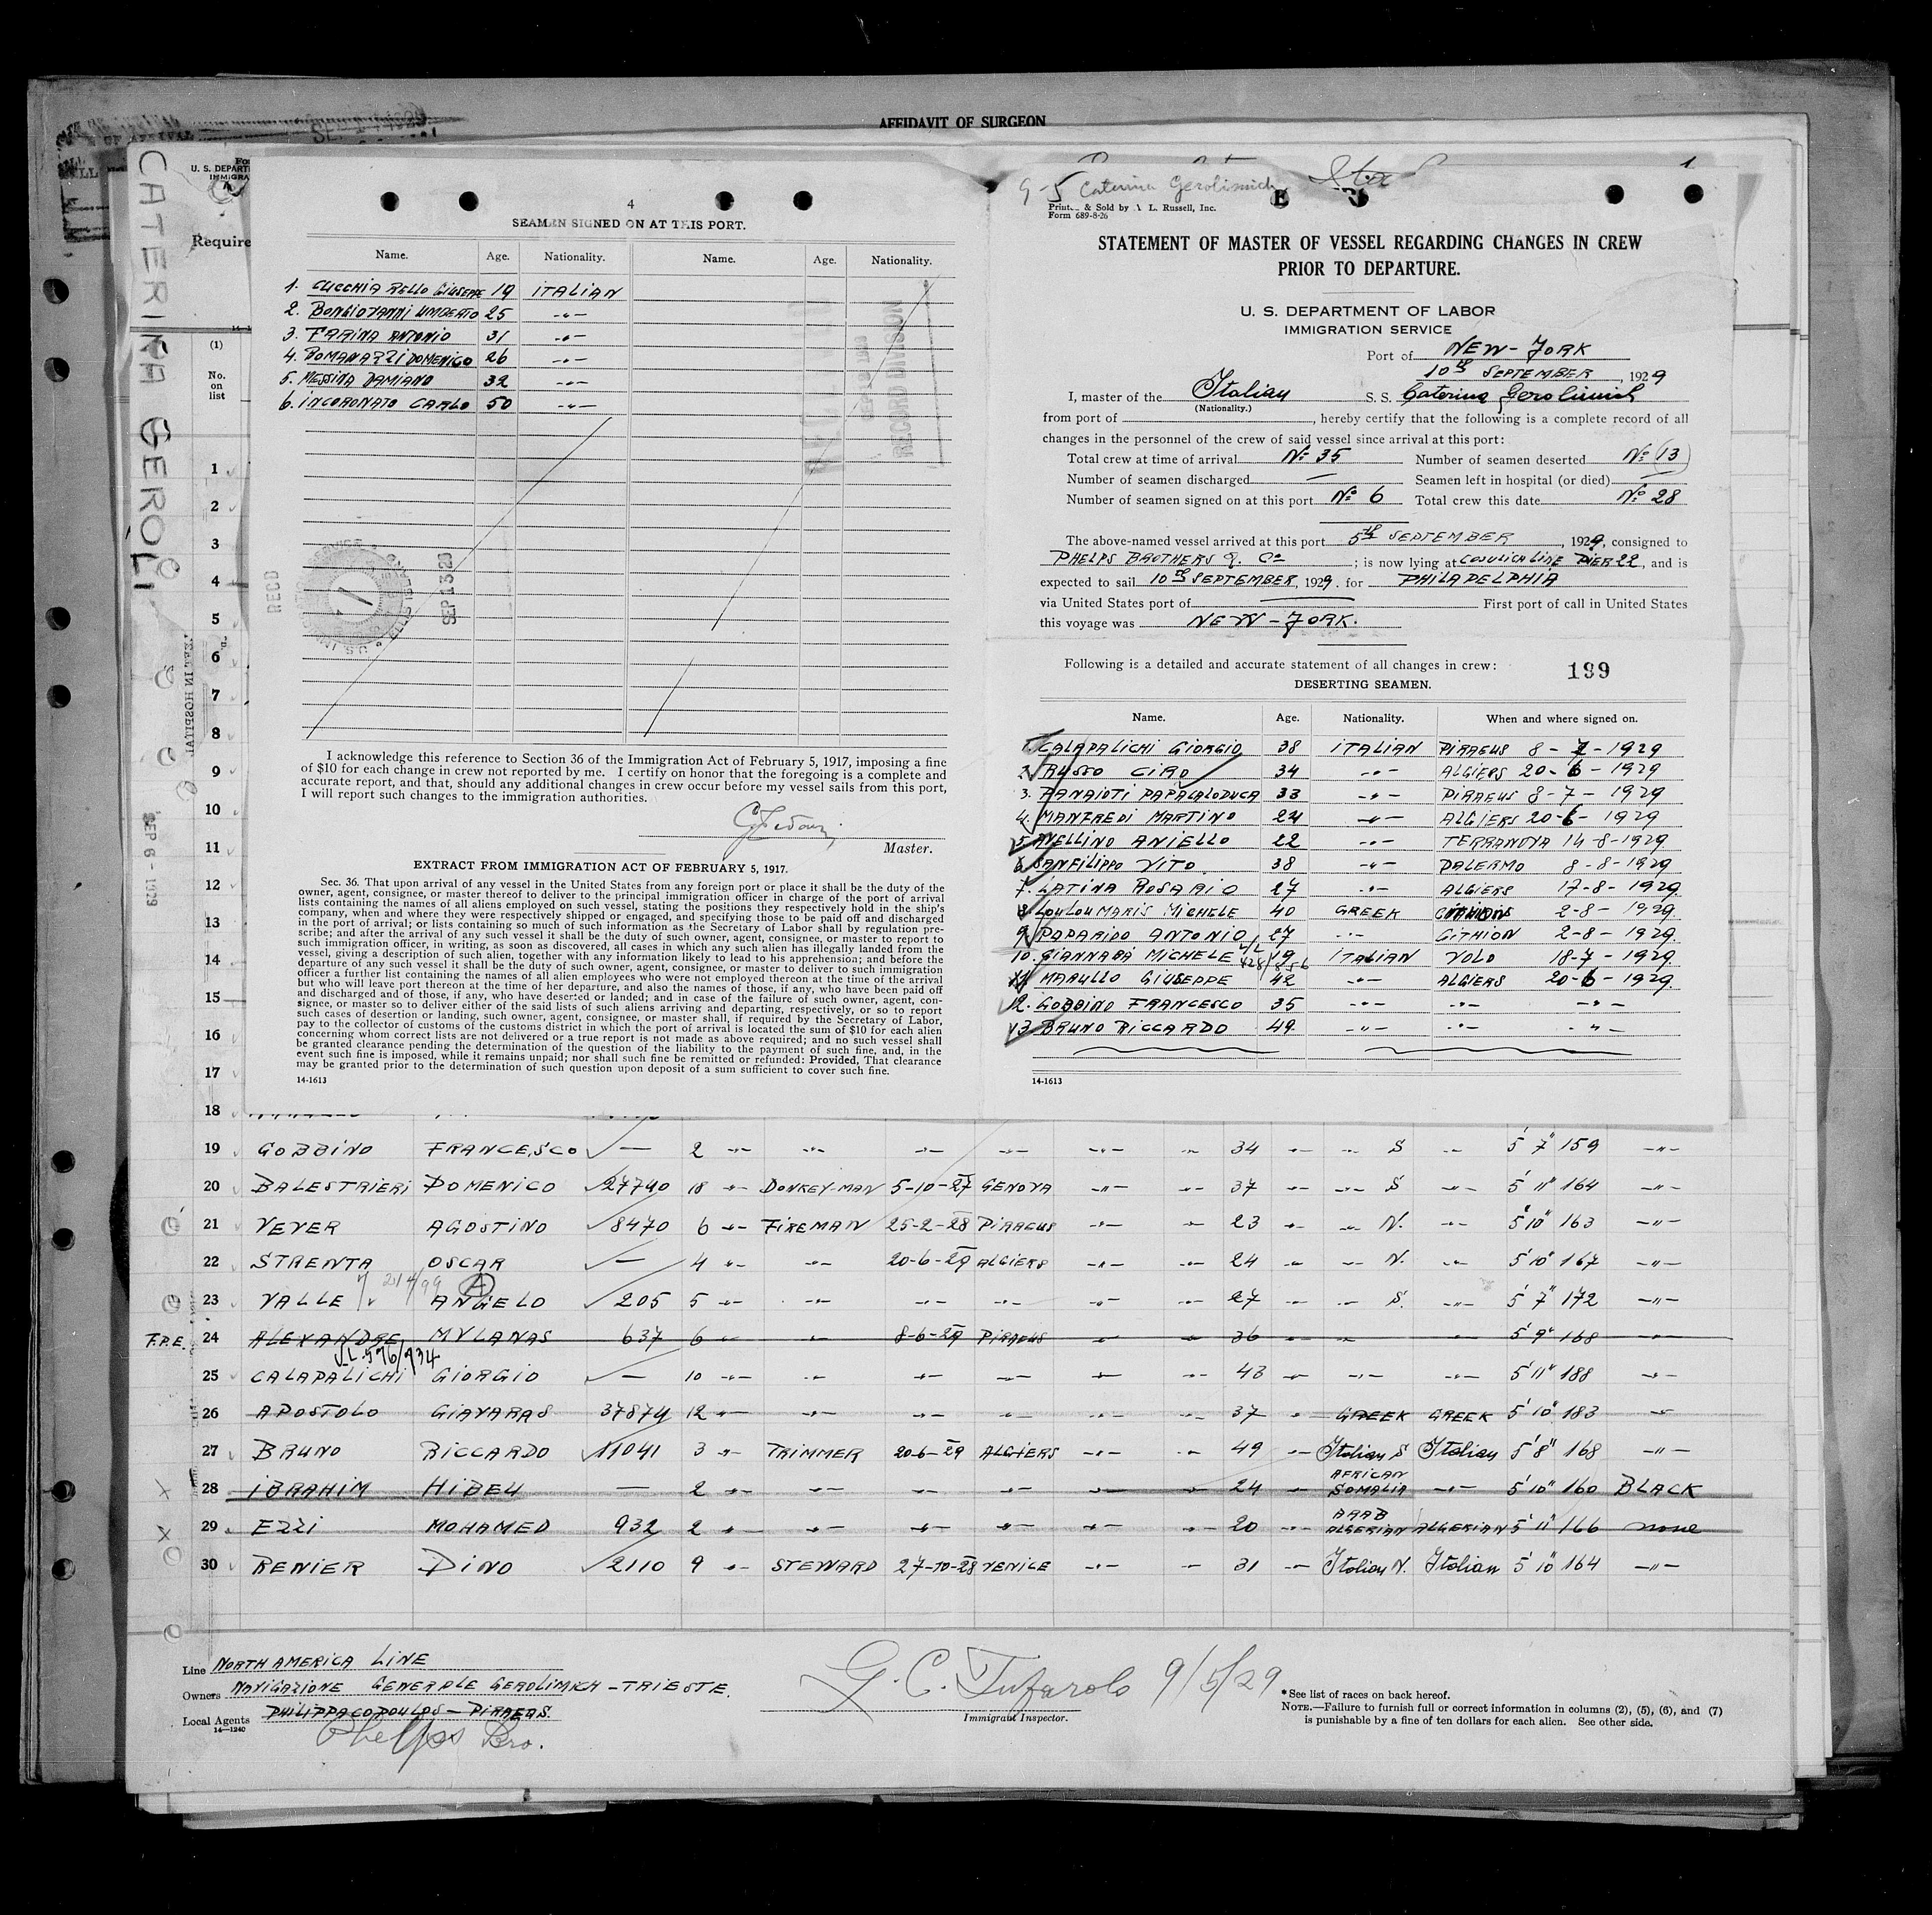 AFFIDAVIT OF SURGEON
CATERINA GEROLI
U. S. DEPART
IMMIGRA
Require
(1)
No.
on
list
1
2
3
4
5
6
7
8
9
10
11
12
13
14
15
16
17
18
SEP 6 - 1929
4
SEAMEN SIGNED ON AT THIS PORT.
Name. Age. Nationality. Name. Age. Nationality.
1. CUCCHIARELLO GIUSEPPE 19 ITALIAN
2. BONGIOVANNI UMBERTO 25 -"-
3. FARINA ANTONIO 31 -"-
4. ROMANAZZI DOMENICO 26 -"-
5. MESSINA DAMIANO 32 -"-
6. INCORONATO CARLO 50 -"-
RECORD DIVISION
RECD
SEP 13 29
I acknowledge this reference to Section 36 of the Immigration Act of February 5, 1917, imposing a fine
of $10 for each change in crew not reported by me. I certify on honor that the foregoing is a complete and
accurate report, and that, should any additional changes in crew occur before my vessel sails from this port,
I will report such changes to the immigration authorities.
Master.
EXTRACT FROM IMMIGRATION ACT OF FEBRUARY 5, 1917.
Sec. 36. That upon arrival of any vessel in the United States from any foreign port or place it shall be the duty of the
owner, agent, consignee, or master thereof to deliver to the principal immigration officer in charge of the port of arrival
lists containing the names of all aliens employed on such vessel, stating the positions they respectively hold in the ship's
company, when and where they were respectively shipped or engaged, and specifying those to be paid off and discharged
in the port of arrival; or lists containing so much of such information as the Secretary of Labor shall by regulation pre-
scribe; and after the arrival of any such vessel it shall be the duty of such owner, agent, consignee, or master to report to
such immigration officer, in writing, as soon as discovered, all cases in which any such alien has illegally landed from the
vessel, giving a description of such alien, together with any information likely to lead to his apprehension; and before the
departure of any such vessel it shall be the duty of such owner, agent, consignee, or master to deliver to such immigration
officer a further list containing the names of all alien employees who were not employed thereon at the time of the arrival
but who will leave port thereon at the time of her departure, and also the names of those, if any, who have been paid off
and discharged and of those, if any, who have deserted or landed; and in case of the failure of such owner, agent, con-
signee, or master so to deliver either of the said lists of such aliens arriving and departing, respectively, or so to report
such cases of desertion or landing, such owner, agent, consignee, or master shall, if required by the Secretary of Labor,
pay to the collector of customs of the customs district in which the port of arrival is located the sum of $10 for each alien
concerning whom correct lists are not delivered or a true report is not made as above required; and no such vessel shall
be granted clearance pending the determination of the question of the liability to the payment of such fine, and, in the
event such fine is imposed, while it remains unpaid; nor shall such fine be remitted or refunded: Provided, That clearance
may be granted prior to the determination of such question upon deposit of a sum sufficient to cover such fine.
14-1613
9-5 Caterina Gerolimich
1
& Sold by L. Russell, Inc.
Form 689-8-26
STATEMENT OF MASTER OF VESSEL REGARDING CHANGES IN CREW
PRIOR TO DEPARTURE.
U. S. DEPARTMENT OF LABOR
IMMIGRATION SERVICE
Port of NEW-YORK
10th SEPTEMBER, 1929
I, master of the Italian S. S. Caterina Gerolimich
(Nationality.)
from port of , hereby certify that the following is a complete record of all
changes in the personnel of the crew of said vessel since arrival at this port:
Total crew at time of arrival No 35 Number of seamen deserted No (13)
Number of seamen discharged — Seamen left in hospital (or died) —
Number of seamen signed on at this port No 6 Total crew this date No 28
The above-named vessel arrived at this port 5th SEPTEMBER, 1929, consigned to
PHELPS BROTHERS & Co ; is now lying at COSULICH LINE PIER 22, and is
expected to sail 10th SEPTEMBER, 1929. for PHILADELPHIA
via United States port of — First port of call in United States
this voyage was NEW-YORK.
Following is a detailed and accurate statement of all changes in crew: 199
DESERTING SEAMEN.
Name. Age. Nationality. When and where signed on.
1. CALAPALICHI GIORGIO 38 ITALIAN PIRAEUS 8-7-1929
2. RUSSO CIRO 34 -"- ALGIERS 20-6-1929
3. PANAIOTI PAPACALODUCA 33 -"- PIRAEUS 8-7-1929
4. MANFREDI MARTINO 24 -"- ALGIERS 20-6-1929
5. AVELLINO ANIELLO 22 -"- TERRANOVA 14-8-1929
6. SANFILIPPO VITO 38 -"- PALERMO 8-8-1929
7. LATINA ROSARIO 27 -"- ALGIERS 17-8-1929
8. LOULOUMARIS MICHELE 40 GREEK GITHION 2-8-1929
9. POPARIDO ANTONIO 27 -"- GITHION 2-8-1929
10. GIANNARÀ MICHELE 19 ITALIAN VOLO 18-7-1929
11. MARULLO GIUSEPPE 42 -"- ALGIERS 20-6-1929
12. GOBBINO FRANCESCO 35 -"- -"- -"-
13. BRUNO RICCARDO 49 -"- -"- -"-
14-1613
19 GOBBINO FRANCESCO — 2 -"- -"- -"- -"- -"- -"- 34 -"- -"- S -"- 5' 7" 159 -"-
20 BALESTRIERI DOMENICO 27740 18 -"- DONKEY-MAN 5-10-27 GENOVA -"- -"- 37 -"- -"- S -"- 5' 11" 164 -"-
21 VEVER AGOSTINO 8470 6 -"- FIREMAN 25-2-28 PIRAEUS -"- -"- 23 -"- -"- N. -"- 5' 10" 163 -"-
22 STRENTA OSCAR — 4 -"- -"- 20-6-29 ALGIERS -"- -"- 24 -"- -"- N. -"- 5' 10" 167 -"-
(A)
23 VALLE ANGELO 205 5 -"- -"- -"- -"- -"- -"- 27 -"- -"- S. -"- 5' 7" 172 -"-
F.P.E. 24 ALEXANDRE MYLANAS 637 6 -"- -"- 8-6-29 PIRAEUS -"- -"- 36 -"- -"- -"- 5' 9" 168 -"-
VL 596/934
25 CALAPALICHI GIORGIO — 10 -"- -"- -"- -"- -"- -"- 43 -"- -"- -"- 5' 11" 188 -"-
26 APOSTOLO GIAVARAS 37874 12 -"- -"- -"- -"- -"- -"- 37 -"- GREEK GREEK 5' 10" 183 -"-
27 BRUNO RICCARDO 11041 3 -"- TRIMMER 20-6-29 ALGIERS -"- -"- 49 -"- Italian S Italian 5' 8" 168 -"-
28 IBRAHIM HIBEU — 2 -"- -"- -"- -"- -"- -"- 24 -"- AFRICAN SOMALIA -"- 5' 10" 160 BLACK
29 EZZI MOHAMED 932 2 -"- -"- -"- -"- -"- 20 -"- ARAB ALGERIAN ALGERIAN 5' 11" 166 none
30 RENIER DINO 2110 9 -"- STEWARD 27-10-28 VENICE -"- -"- 31 -"- Italian N. Italian 5' 10" 164 -"-
Line NORTH AMERICA LINE
Owners NAVIGAZIONE GENERALE GEROLIMICH - TRIESTE.
Local Agents PHILIPPACOPOULOS - PIRAEUS.
14-1240
Phelps Bro.
G. C. Tufarolo 9/5/29
Immigrant Inspector.
*See list of races on back hereof.
NOTE.—Failure to furnish full or correct information in columns (2), (5), (6), and (7)
is punishable by a fine of ten dollars for each alien. See other side.